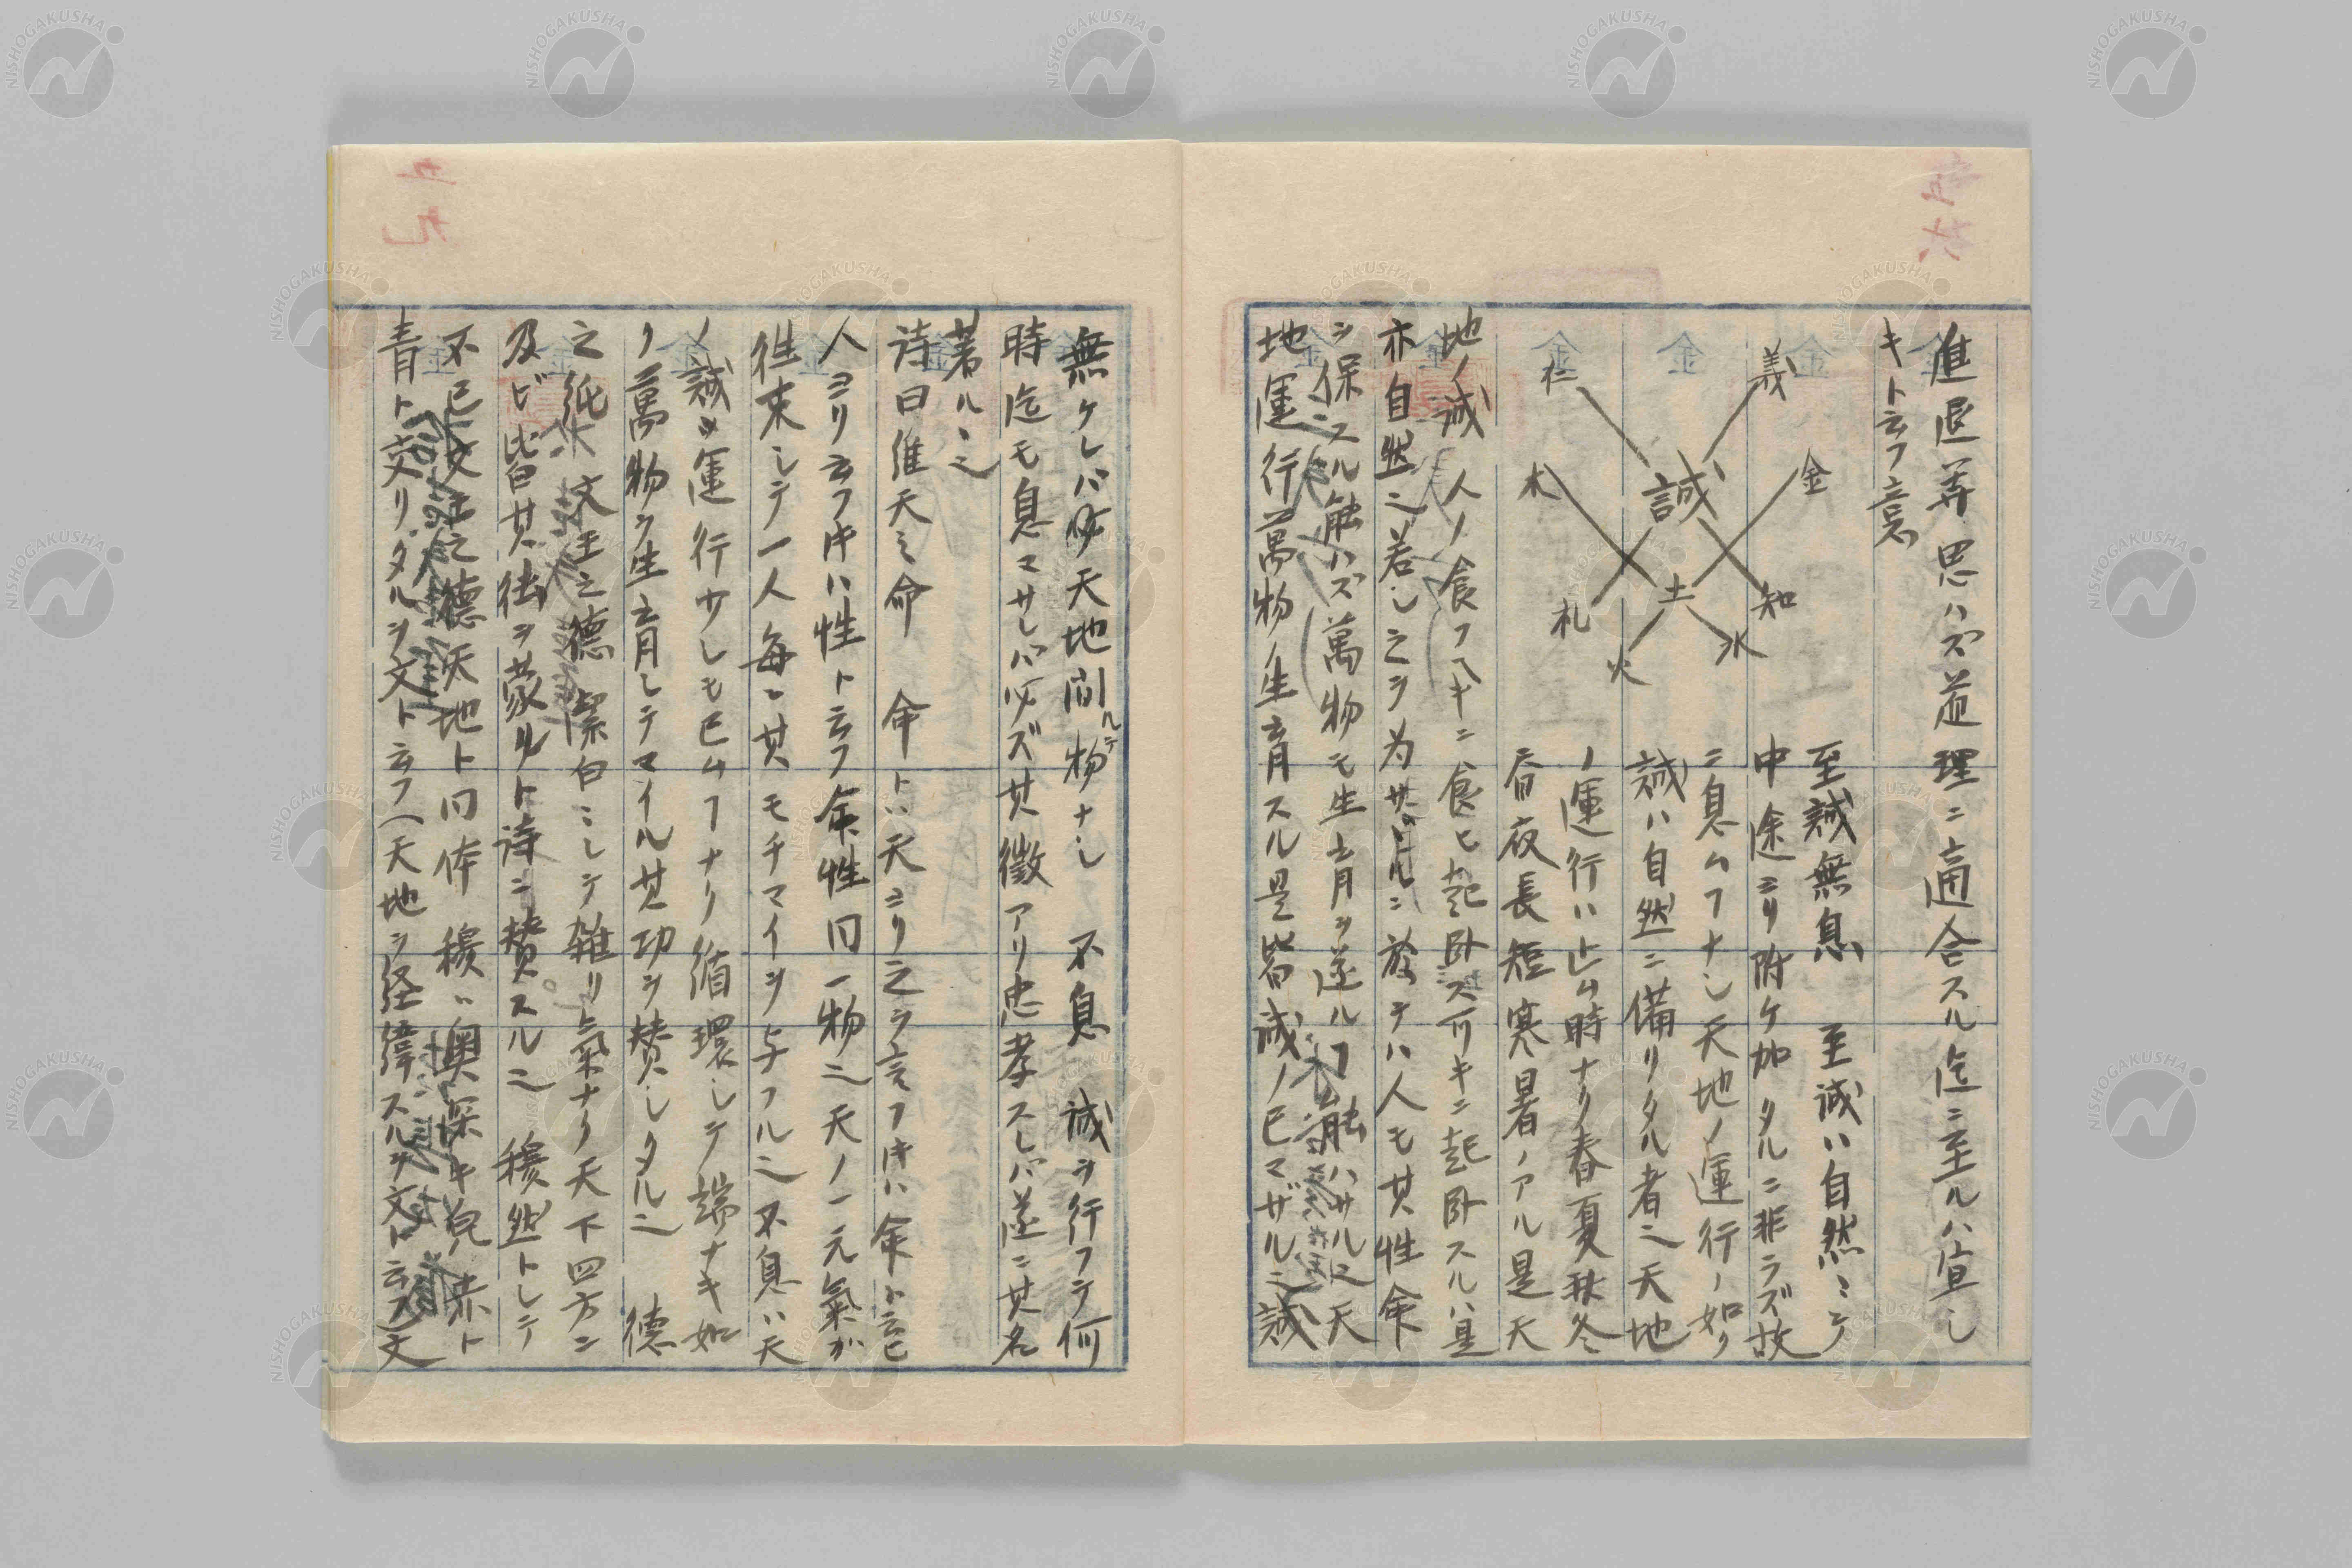 進退弄思ハズ道理ニ適合スル迄ニ至ルハ宜シ
キト云フ意
義
仁
金
誠
木
土
知
礼
水
火
至誠無息 至誠ハ自然ニシテ
中途ヨリ附ケ加タルニ非ラズ故
ニ息ムフナシ天地ノ運行ノ如リ
誠ハ自然ニ備リタル者ニ天地
ノ運行ハ止ム時ナリ春夏秋冬
昼夜長短寒暑ノアル是天
地ノ誠 人ノ食フヘキニ食ヒ起臥ス可キニ起臥スルハ是
亦自然ニ若シ之ヲ為サヾルニ於テハ人モ其性命
ヲ保ニスル能ハズ萬物モ生育ヲ遂ルフ能ハサルニ天
地運行萬物ノ生育スル是皆誠ノ已マザルニ誠
無ケレバ天地間ルテ物ナシ 不息 誠ヲ行フテ何
時迄モ息マサレバ必ズ其徴アリ忠孝スレバ遂ニ其名
著ルニ
詩曰維天之命 命トハ天ヨリ之ヲ言フ件ハ命ト云ヒ
人ヨリ云フ件ハ性ト云フ命性同一物ニ天ノ一元氣ガ
往来シテ一人毎ニ其モチマイヲ与フルニ不息ハ天
ノ誠ヲ運行サレモ已ムフナリ循環シテ端ナキ如
リ萬物ヲ生育シテマイル其功ヲ賛シタルニ 德
之純 文王之德潔白ニシテ雑リ氣ナリ天下四方ニ
及ビ皆其徳ヲ蒙ルト詩ニ賛スルニ 穆然トシテ
不已文王之德天地ト同体 穆ハ奥深キ皃 赤ト
青ト交リタルヲ文ト云フ(天地ヲ経緯スルヲ文ト云)文